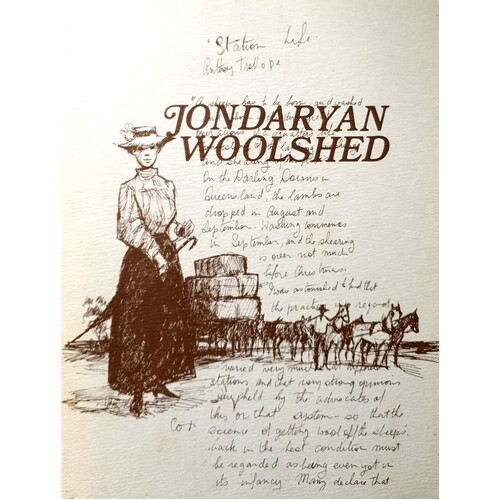 "Station Life.
Anthony Trollope
"A sheep has to be born, and washed
JONDARYAN
WOOLSHED
and shearing
On the Darling Downs in
Queensland the lambs are
dropped in August and
September. Washing commences
in September, and the shearing
is over not much
before Christmas.
"I was astonished to find that
the practice
varied very much
stations, and that very strong opinions
held by the advocates of
this or that system - so that the
science of getting wool off the sheeps'
back in the best condition must
be regarded as being even yet in
its infancy. Many declare that
Cox